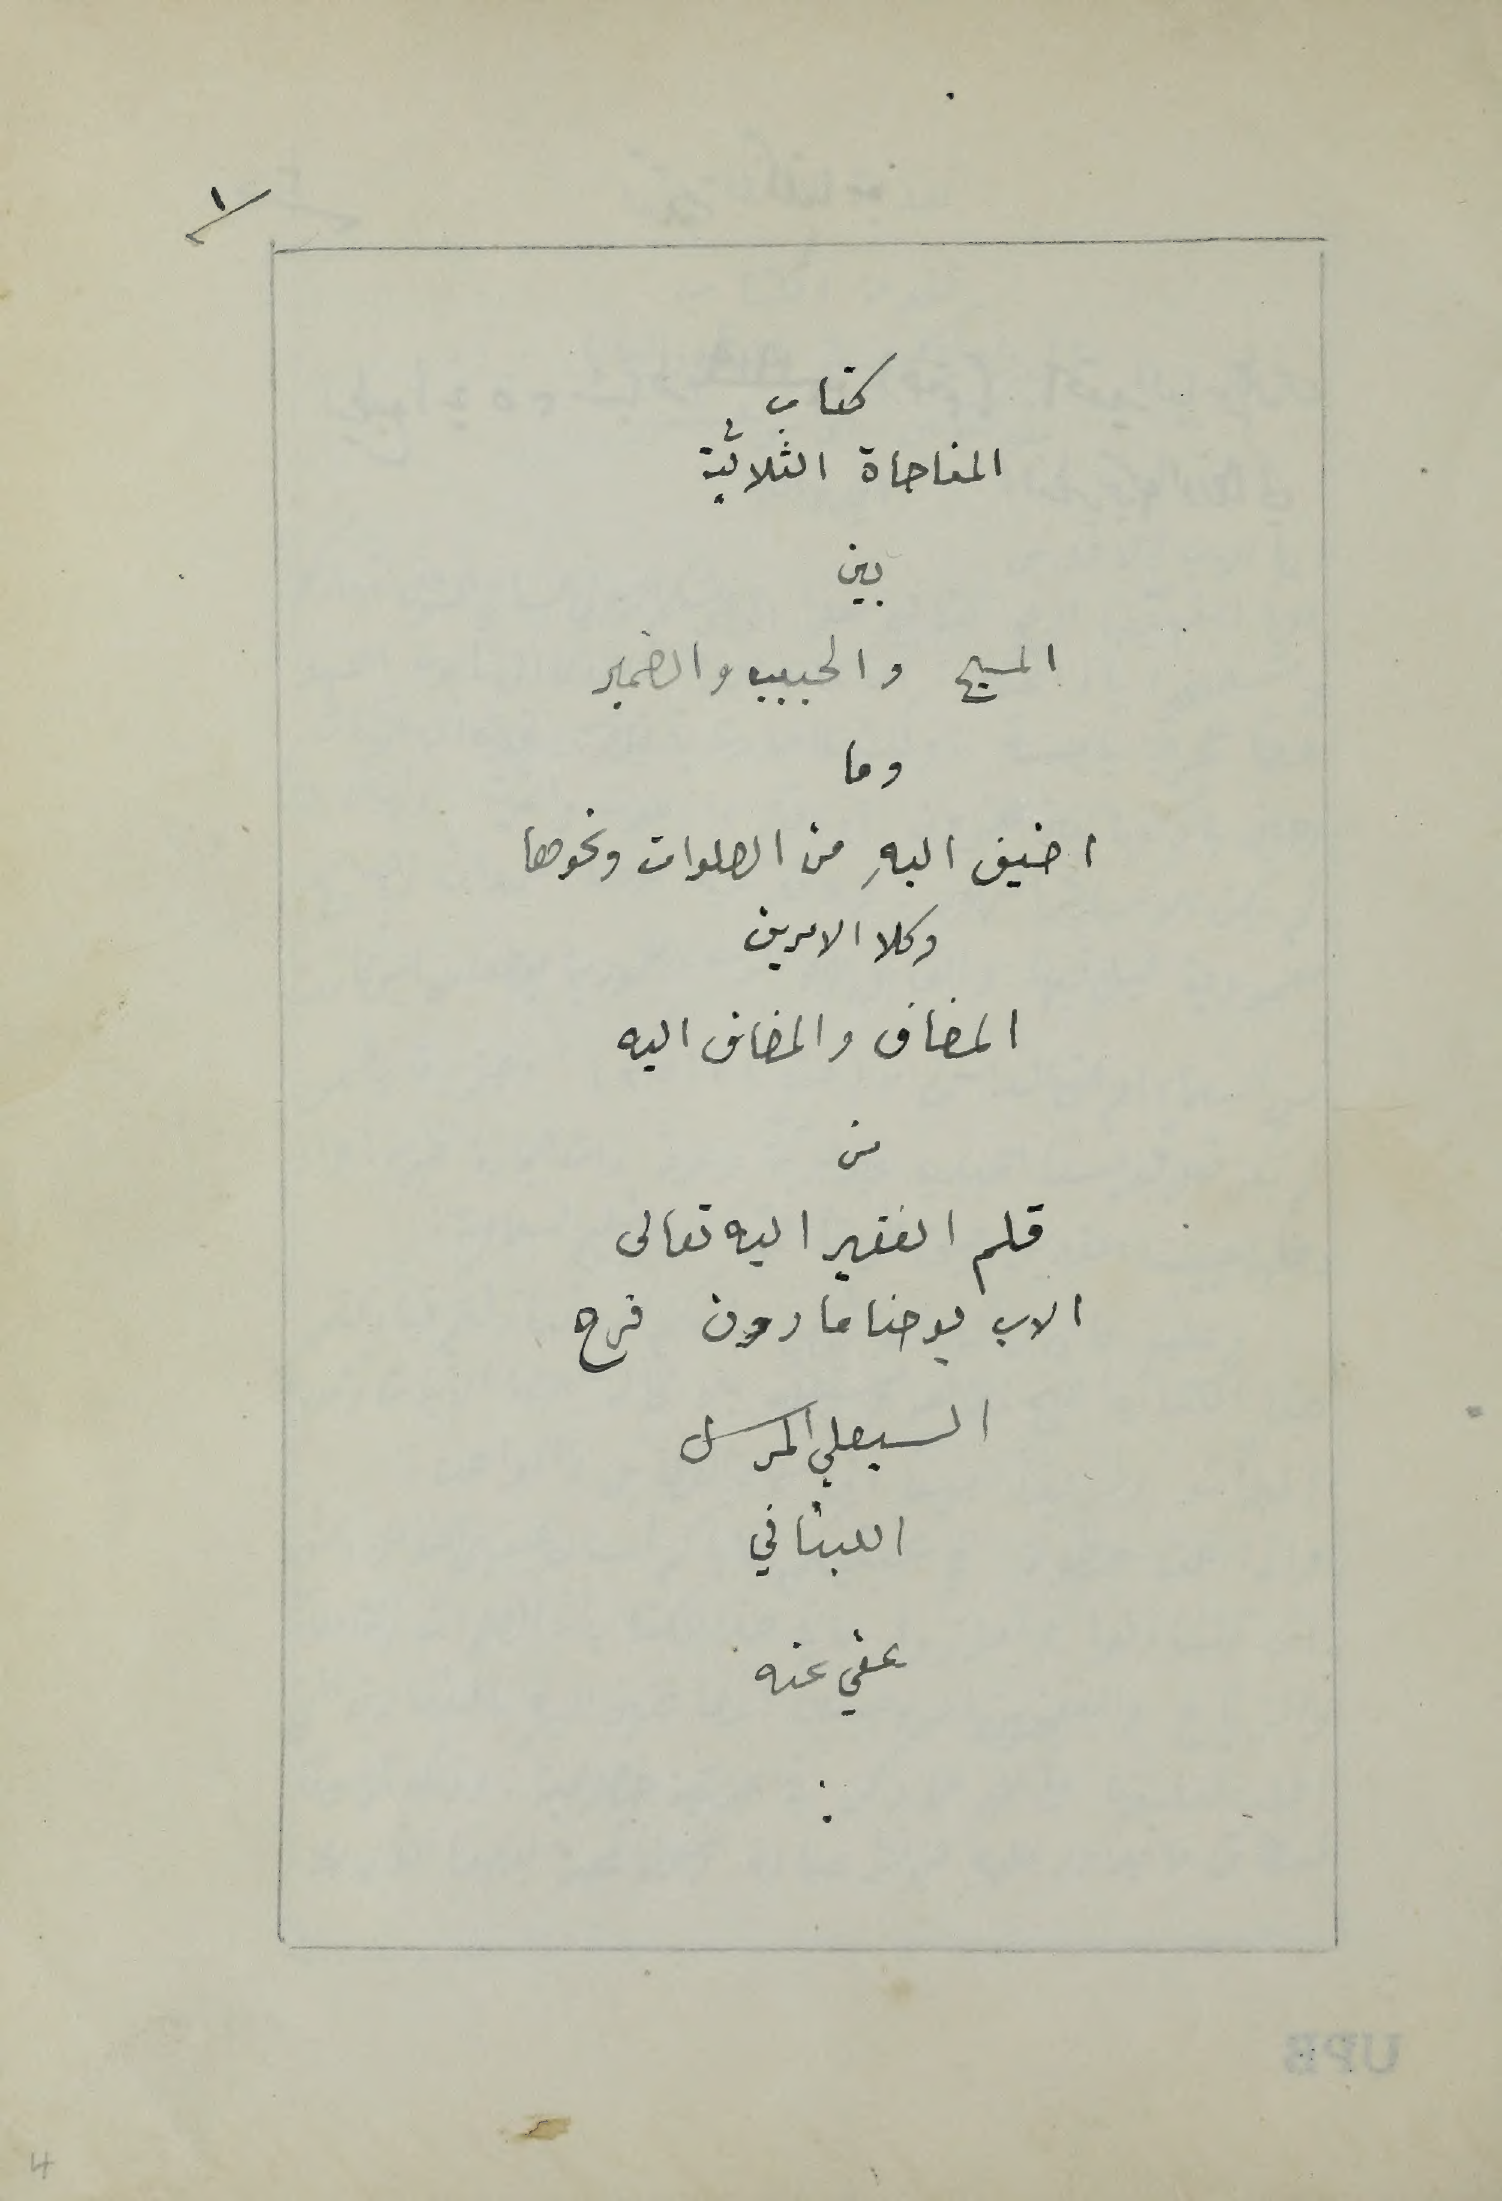 ١
كتاب
المناجاة الثلاثية
بين
المسيح والحبيب والضمير
وما
اضيف اليهِ من الصلوات ونحوها
وكلا الامرين
المضاف والمضاف اليه
من
قلم الفقير اليه تعالى
الاب يوحنا مارون فرج
السبعلي المرسل
اللبناني
عفي عنه
4